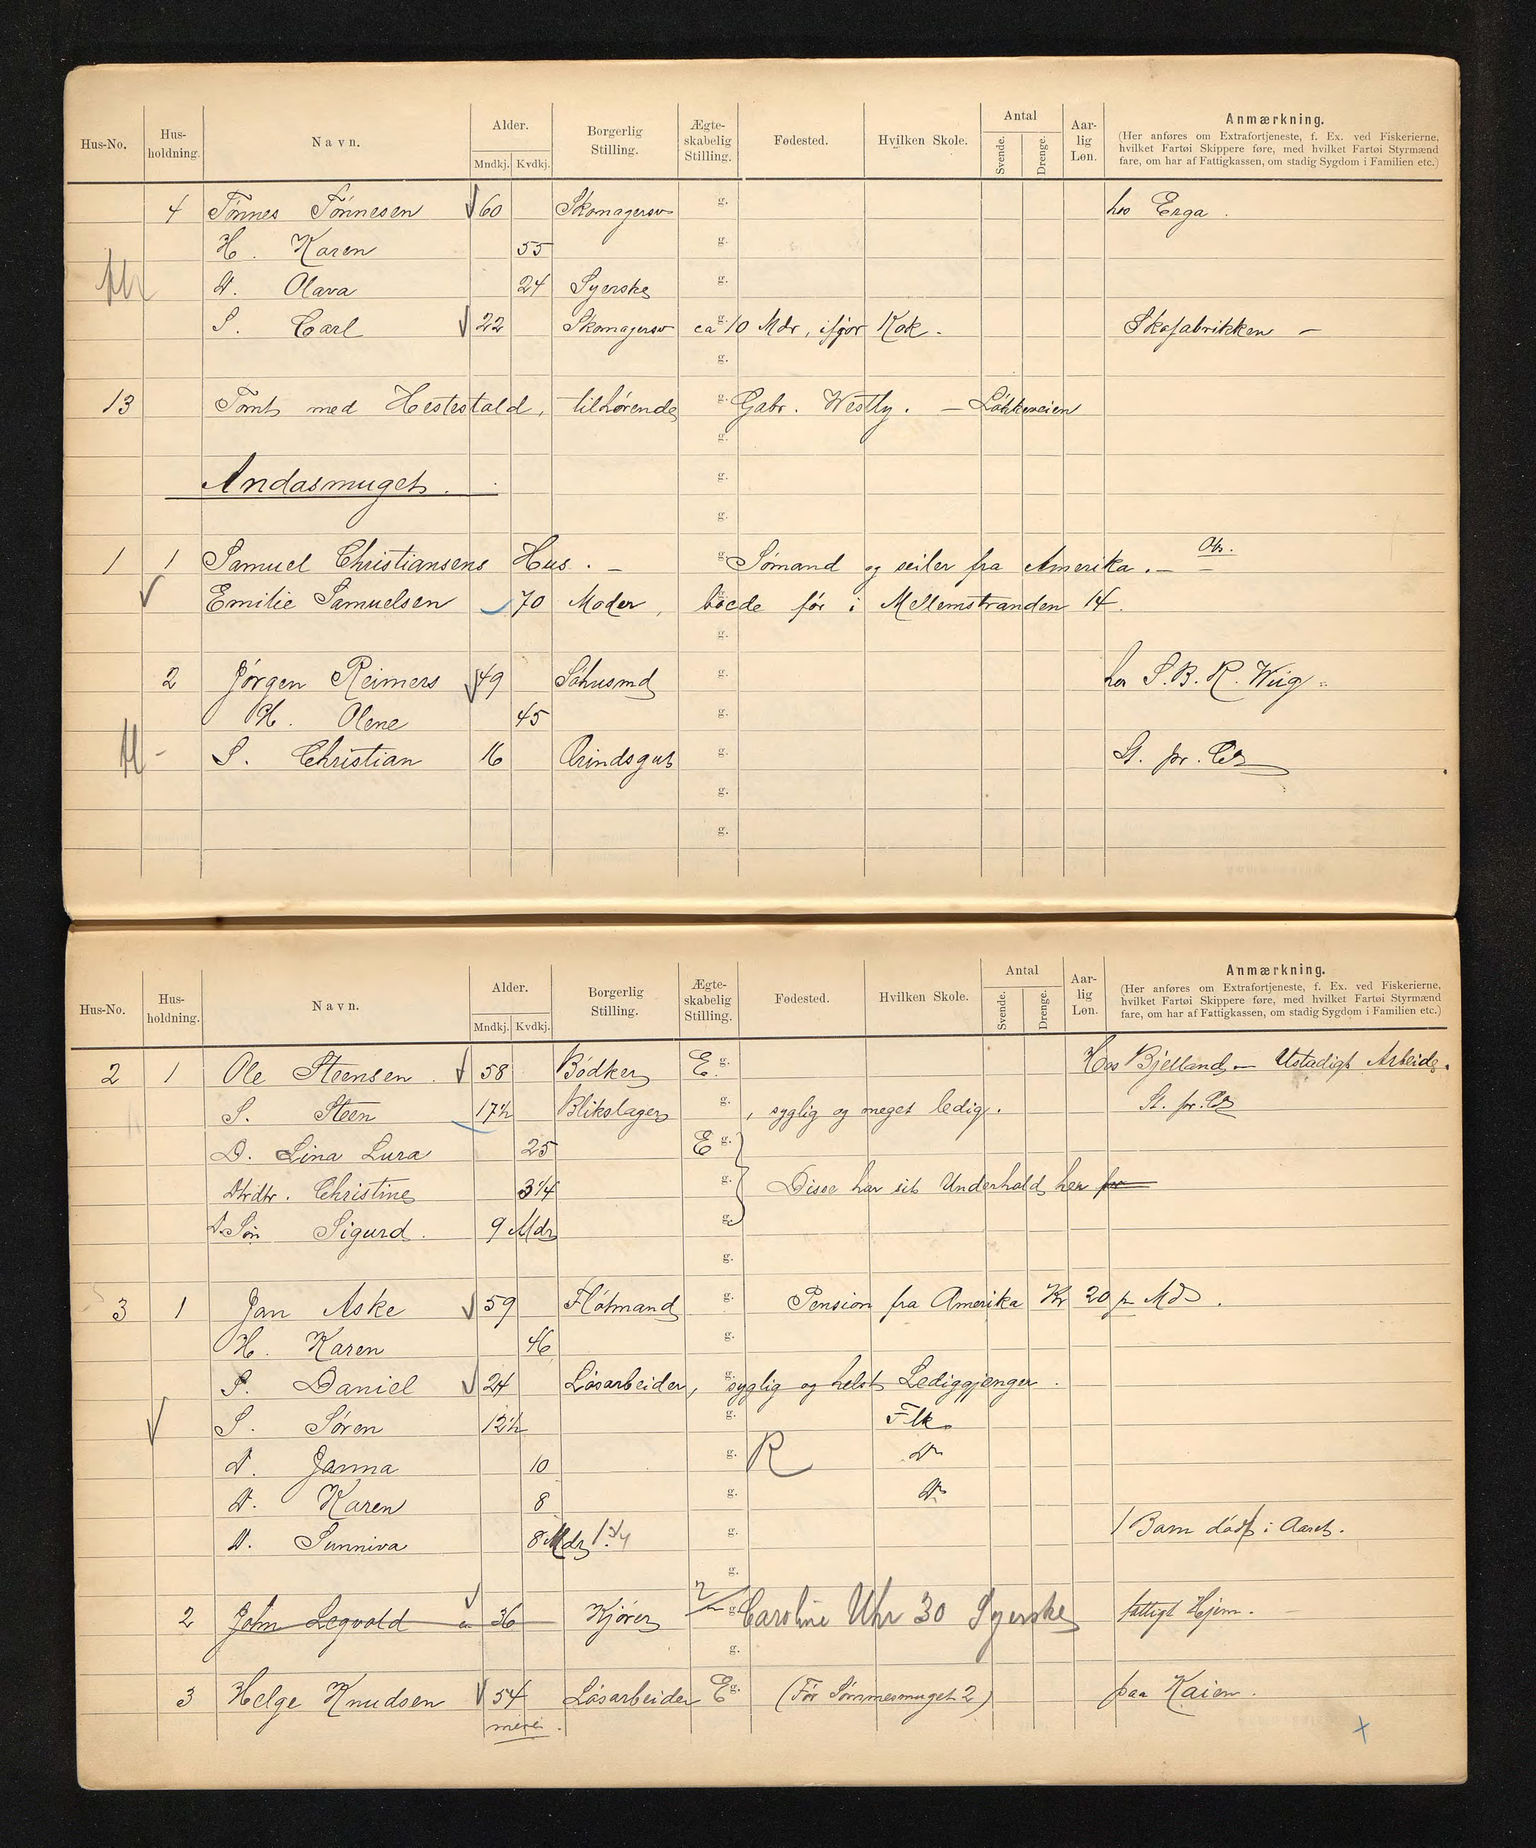 Hus-No. Hus-holdning. Navn. Alder. Mndkj. Kvdkj. Borgerlig Stilling. Ægteskabelig Stilling. Fødested. Hvilken Skole. Antal Svende. Drenge. Aarlig Løn. Anmærkning.
(Her anføres om Extrafortjeneste, f. Ex. ved Fiskerierne,
hvilket Fartøi Skippere føre, med hvilket Fartøi Styrmænd
fare, om har af Fattigkassen, om stadig Sygdom i Familien etc.)
4 Tönnes Tönnesen 60 Skomagersv g. hos Erga.
H. Karen 55 g.
D. Olava 24 Syerske g.
S. Carl 22 Skomagersv g. ca 10 Mdr, ifjor Kok. Skofabrikken –
g.
13 Tomt med Hestestald, tilhørende g. Gabr. Westly. – Løkkeveien
g.
Andasmuget. g.
g.
1 1 Samuel Christiansens Hus. – g. Sömand og seiler fra Amerika. –
Emilie Samuelsen 70 Moder, g. boede för i Mellemstranden 14.
g.
2 Jörgen Reimers 49 Söhusmd g. hos S. B. R. Wiig
H. Olene 45 g.
S. Christian 16 Visergut g. St. pr.
g.
g.
Hus-No. Hus-holdning. Navn. Alder. Mndkj. Kvdkj. Borgerlig Stilling. Ægteskabelig Stilling. Fødested. Hvilken Skole. Antal Svende. Drenge. Aarlig Løn. Anmærkning.
(Her anføres om Extrafortjeneste, f. Ex. ved Fiskerierne,
hvilket Fartøi Skippere føre, med hvilket Fartøi Styrmænd
fare, om har af Fattigkassen, om stadig Sygdom i Familien etc.)
2 1 Ole Steensen. 58 Bödker E g. Hos Bjelland – Ustadigt Arbeide.
S. Steen 17½ Blikslager g. , syglig og meget ledig. St. pr.
D. Lina Lura 25 E g.
Dtrdtr. Christine 3¼ g. Disse har sit Underhold her for
D. Sön Sigurd. 9 Mdr g.
g.
3 1 Jan Aske 59 Flötmand g. Pension fra Amerika Kr 20 pr Md.
H. Karen 46 g.
S. Daniel 24 Lösarbeider, g. syglig og helst Lediggjænger.
S. Sören 12½ g. Flk
D. Janna 10 g. R Do
D. Karen 8 g. Do
D. Sunniva 8 Mdr g. 1 Barn död i Aaret.
g.
2 John Legvold 36 Kjörer g. Caroline Uhr 30 Syerske fattigt Hjem.
g.
3 Helge Knudsen 54 Lösarbeider E g. (För Sömmesmuget 2) paa Kaien.